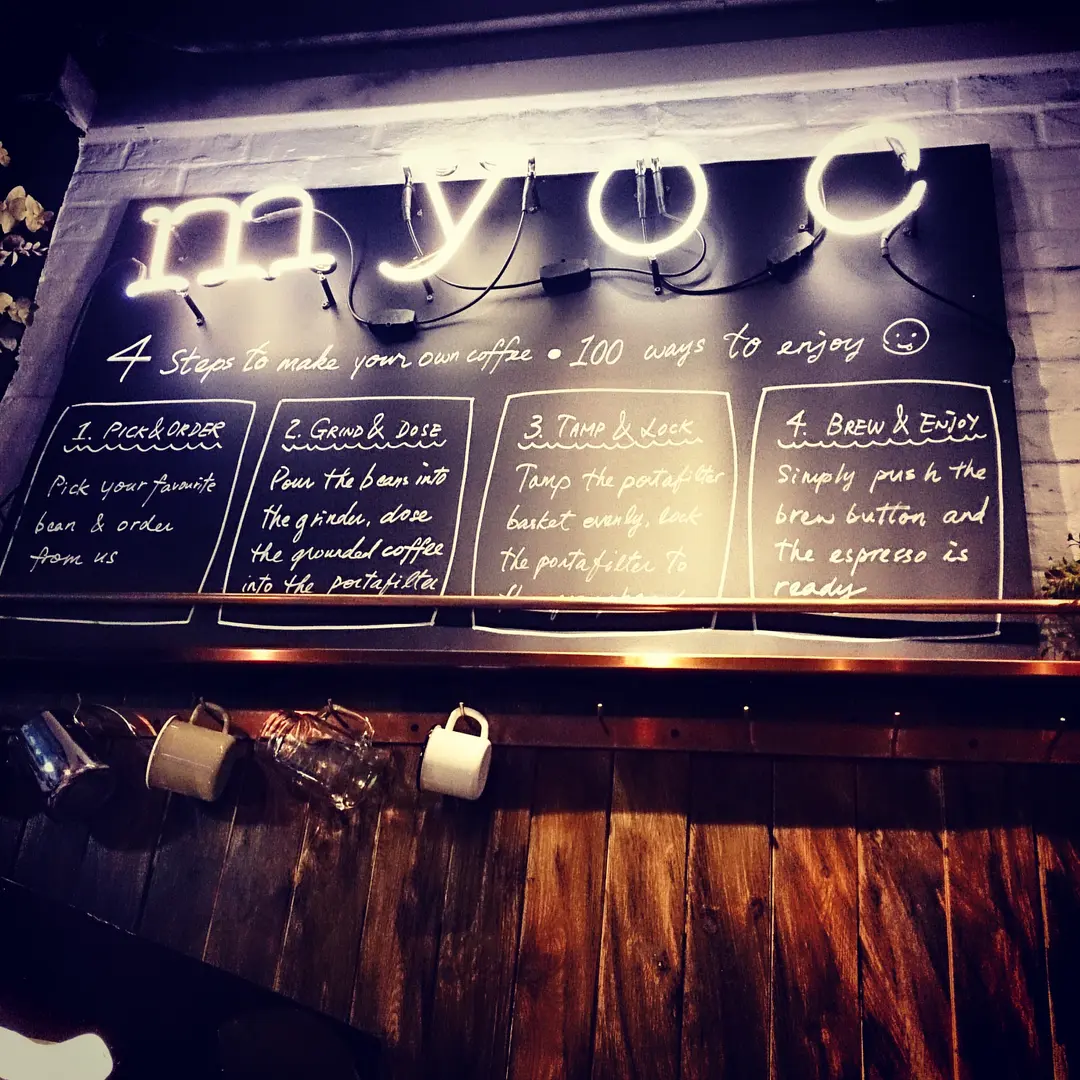 myoc
4 Steps to make your own coffee • 100 ways to enjoy
1. PICK & ORDER
Pick your favourite
bean & order
from us
2. GRIND & DOSE
Pour the beans into
the grinder, dose
the grounded coffee
into the portafilter
3. TAMP & LOCK
Tamp the portafilter
basket evenly, lock
the portafilter to
4. BREW & ENJOY
Simply push the
brew button and
the espresso is
ready